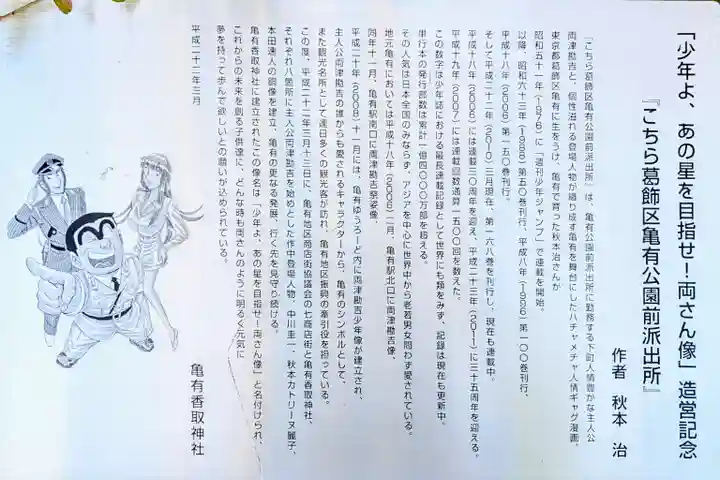 「少年よ、あの星を目指せ！両さん像」造営記念
『こちら葛飾区亀有公園前派出所』
作者 秋本 治
『こちら葛飾区亀有公園前派出所』は、亀有公園前派出所に勤務する下町人情豊かな主人公
両津勘吉と、個性溢れる登場人物が織り成す亀有を舞台にしたハチャメチャ人情ギャグ漫画。
東京都葛飾区亀有に生をうけ、亀有で育った秋本治さんが
昭和五十一年(1976)に「週刊少年ジャンプ」で連載を開始。
以降、昭和六十三年(1988)第五〇巻刊行、平成八年(1996)第一〇〇巻刊行、
平成十八年(2006)第一五〇巻刊行。
そして平成二十二年(2010)三月現在、第一六八巻を刊行し、現在も連載中。
平成十八年(2006)には連載三〇周年を迎え、平成二十三年(2011)に三十五周年を迎える。
平成十九年(2007)には連載回数通算一五〇〇回を数えた。
この数字は少年誌における最長連載記録として世界にも類をみず、記録は現在も更新中。
単行本の発行部数は累計一億四〇〇〇万部を超える。
その人気は日本全国のみならず、アジアを中心に世界中から老若男女問わず愛されている。
地元亀有においては平成十八年(2006)二月、亀有駅北口に両津勘吉像、
同年十一月、亀有駅南口に両津勘吉祭姿像、
平成二十年(2008)十一月には、亀有ゆうろーど内に両津勘吉少年像が建立され、
主人公両津勘吉の誰からも愛されるキャラクターから、亀有のシンボルとして、
また観光名所として連日多くの観光客が訪れ、亀有地区振興の牽引役を担っている。
この度、平成二十二年三月十三日に、亀有地区商店街協議会の七商店街と亀有香取神社、
それぞれ八箇所に主人公両津勘吉を始めとした作中登場人物、中川圭一、秋本カトリーヌ麗子、
本田速人の銅像を建立、亀有の更なる発展、行く先を見守り続ける。
亀有香取神社に建立されたこの像名は「少年よ、あの星を目指せ！両さん像」と名付けられ、
これからの未来を創る子供達に、どんな時も両さんのように明るく元気に
夢を持って歩んで欲しいとの願いが込められている。
平成二十二年三月
亀有香取神社